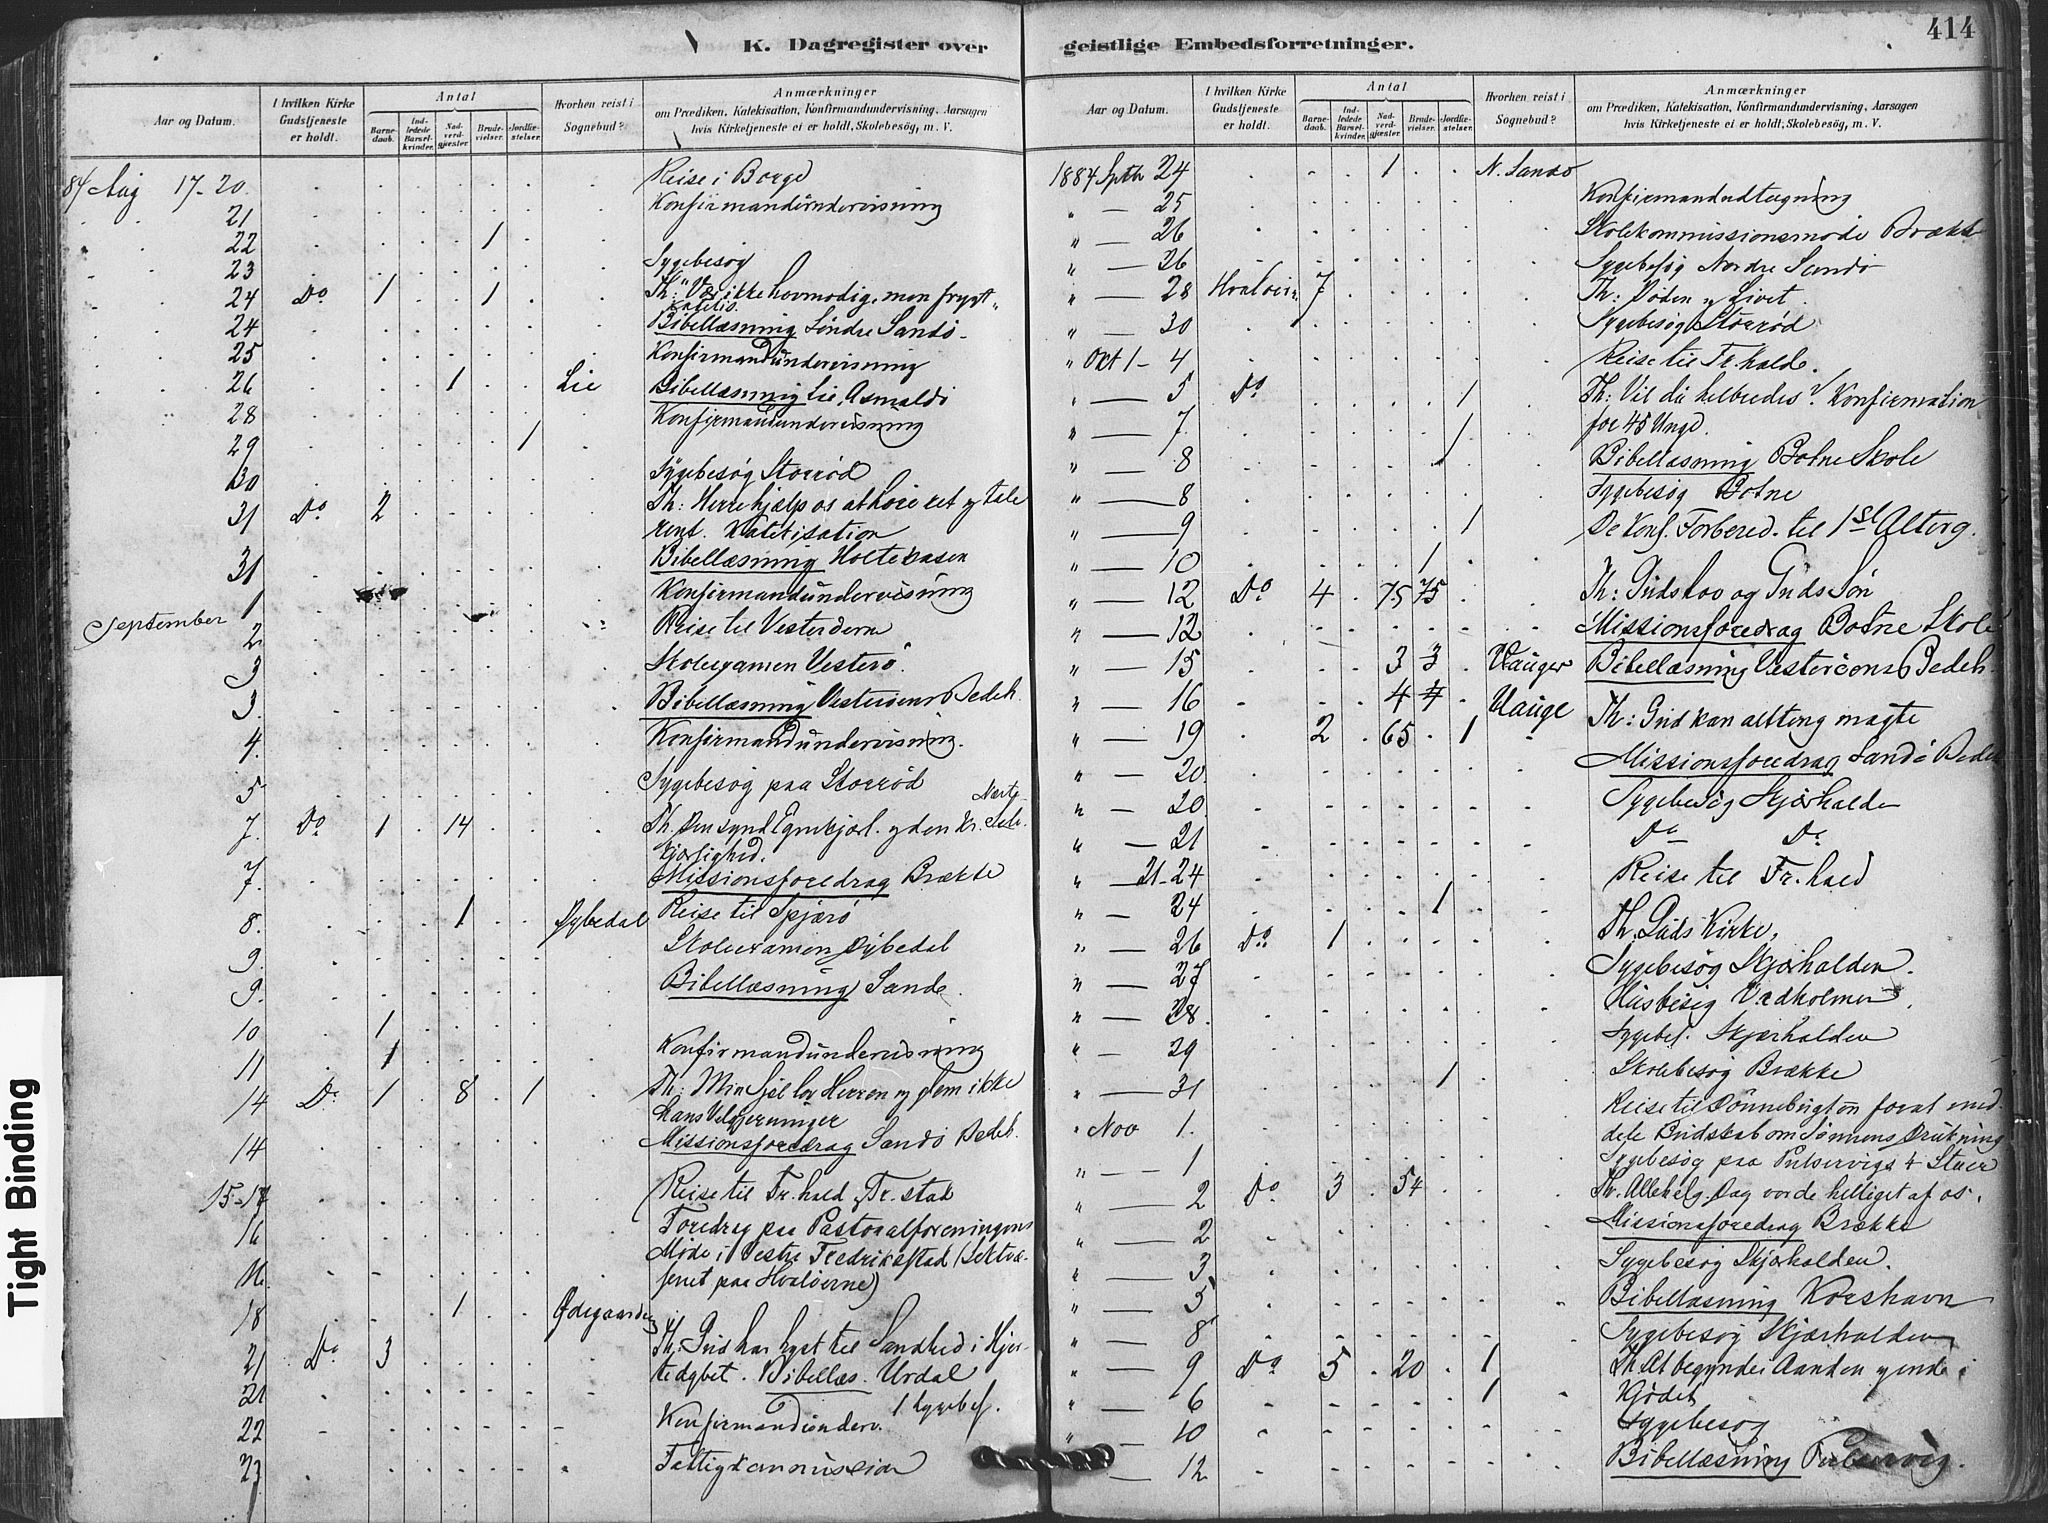 K. Dagregister over
Aar og Datum.
I hvilken Kirke Gudstjeneste er holdt.
Antal
Barnedaab.
Indledede Barselkvinder.
Nadverdgjæster.
Brudevielser.
Jordfæstelser.
Hvorhen reist i Sognebud?
Anmærkninger
om Prædiken, Katekisation, Konfirmandundervisning, Aarsagen
hvis Kirketjeneste ei er holdt, Skolebesøg, m. V.
84 Aug 17-20 Reise i Borge
21 Konfirmandundervisning
22 1
23 Sygebesøg
24 Do 1 1 Th: "Vær ikke hovmodig, men frygt"
Katekis.
24 Bibellæsning Søndre Sandø
25 Konfirmandundervisning
26 1 Lie Bibellæsning Lie, Asmalø
28 Konfirmandundervisning
29 1
30 Sygebesøg Storrød
31 Do 2 Th: Herre hjælp os at høre ret og tale
rent. Katekisation
31 Bibellæsning Holtekasen
September 1 Konfirmandundervisning
2 Reise til Vesterøerne
3 Skolexamen Vesterø
3 Bibellæsning Vesterøens Bedeh.
4 Konfirmandundervisning.
5 Sygebesøg paa Storrød
7. Do 1 14 Th. Den synd. Egenkjærl. og den Kr. Næste-
kjærlighed.
7. Missionsforedrag Brække
8. 1 Dybedal Reise til Spjærø
9. Skolexamen Dybedal
9. Bibellæsning Sande.
10 1
11 1 Konfirmandundervisning
14 Do 1 8 1 Th: Min Sjæl lov Herren og glem ikke
hans Velgjerninger
14 Missionsforedrag Sandø Bedeh.
15-17 Reise til Fr.hald, Fr.stad
16 Foredrag paa Pastoralforeningens
Møde i Vestre Fredrikstad
paa Hvaløerne)
18 1 Ødegaarden
21 Do 3 Th: Gud har lyst til Sandhed i Hjer-
tedybet. Bibellæs. Urdal
21 1 Sygebes.
22 Konfirmandunderv.
23 Fattigkommission
Tight Binding
geistlige Embedsforretninger.
414
Aar og Datum.
I hvilken Kirke Gudstjeneste er holdt.
Antal
Barnedaab.
Indledede Barselkvinder.
Nadverdgjæster.
Brudevielser.
Jordfæstelser.
Hvorhen reist i Sognebud?
Anmærkninger
om Prædiken, Katekisation, Konfirmandundervisning, Aarsagen
hvis Kirketjeneste ei er holdt, Skolebesøg, m. V.
1884 Sptbr 24 1 N. Sandø
" — 25 Konfirmandudtegning
" — 26 Skolekommissionsmøde Brække
" — 26 Sygebesøg Nordre Sandø
" — 28 Hvaløern 7 Th: Døden og Livet.
" — 30 Sygebesøg Storrød
" Oct 1-4 Reise til Fr.hald.
" — 5 Do 1 Th: Vil du helbredes? Konfirmation
for 45 Unge.
" — 7. 1
" — 8 1 Bibellæsning Botne Skole
" — 8 Sygebesøg Botne
" — 9 1 De Konf. Forbered. til 1ste Alterg.
" — 10 1
" — 12 Do 4 75 75 Th: Guds Lov og Guds Søn
" — 12 Missionsforedrag Botne Skole
" — 15 3 3 Vauger Bibellæsning Vesterøens Bedeh.
" — 16 4 4 Vauge
" — 19 2 65 1 Th: Gud kan alting magte
" — 20. Missionsforedrag Sandø Bedeh
" — 20 Sygebesøg Skjærhalden
" — 21 Do Do
" — 21-24 Reise til Fr.hald
" — 24 1
" — 26 Do 1 Th. Guds Kirke.
" — 27 Sygebesøg Skjærhalden.
" — 28. Husbesøg Vadholmen
" — 29 Sygebes. Skjærhalden
" — 31 1 Skolebesøg Brække
" Nov 1. Reise til Dønnebugten for at med-
dele Budskab om Sønnens Drukning
" — 1 Sygebesøg paa Pulservigs
" — 2 Do 3 54 Th. Allehelg. Dag vorde helliget af os.
" — 2 Missionsforedrag Brække
" — 3 Sygebesøg Skjærhalden.
" — 5 Bibellæsning Korshavn
" — 8 Sygebesøg Skjærhalden
" — 9 Do 5 20 1 Th. At begynde i Aanden og ende i
Kjødet
" — 6 1
" — 10 Sygebesøg
— 12 Bibellæsning